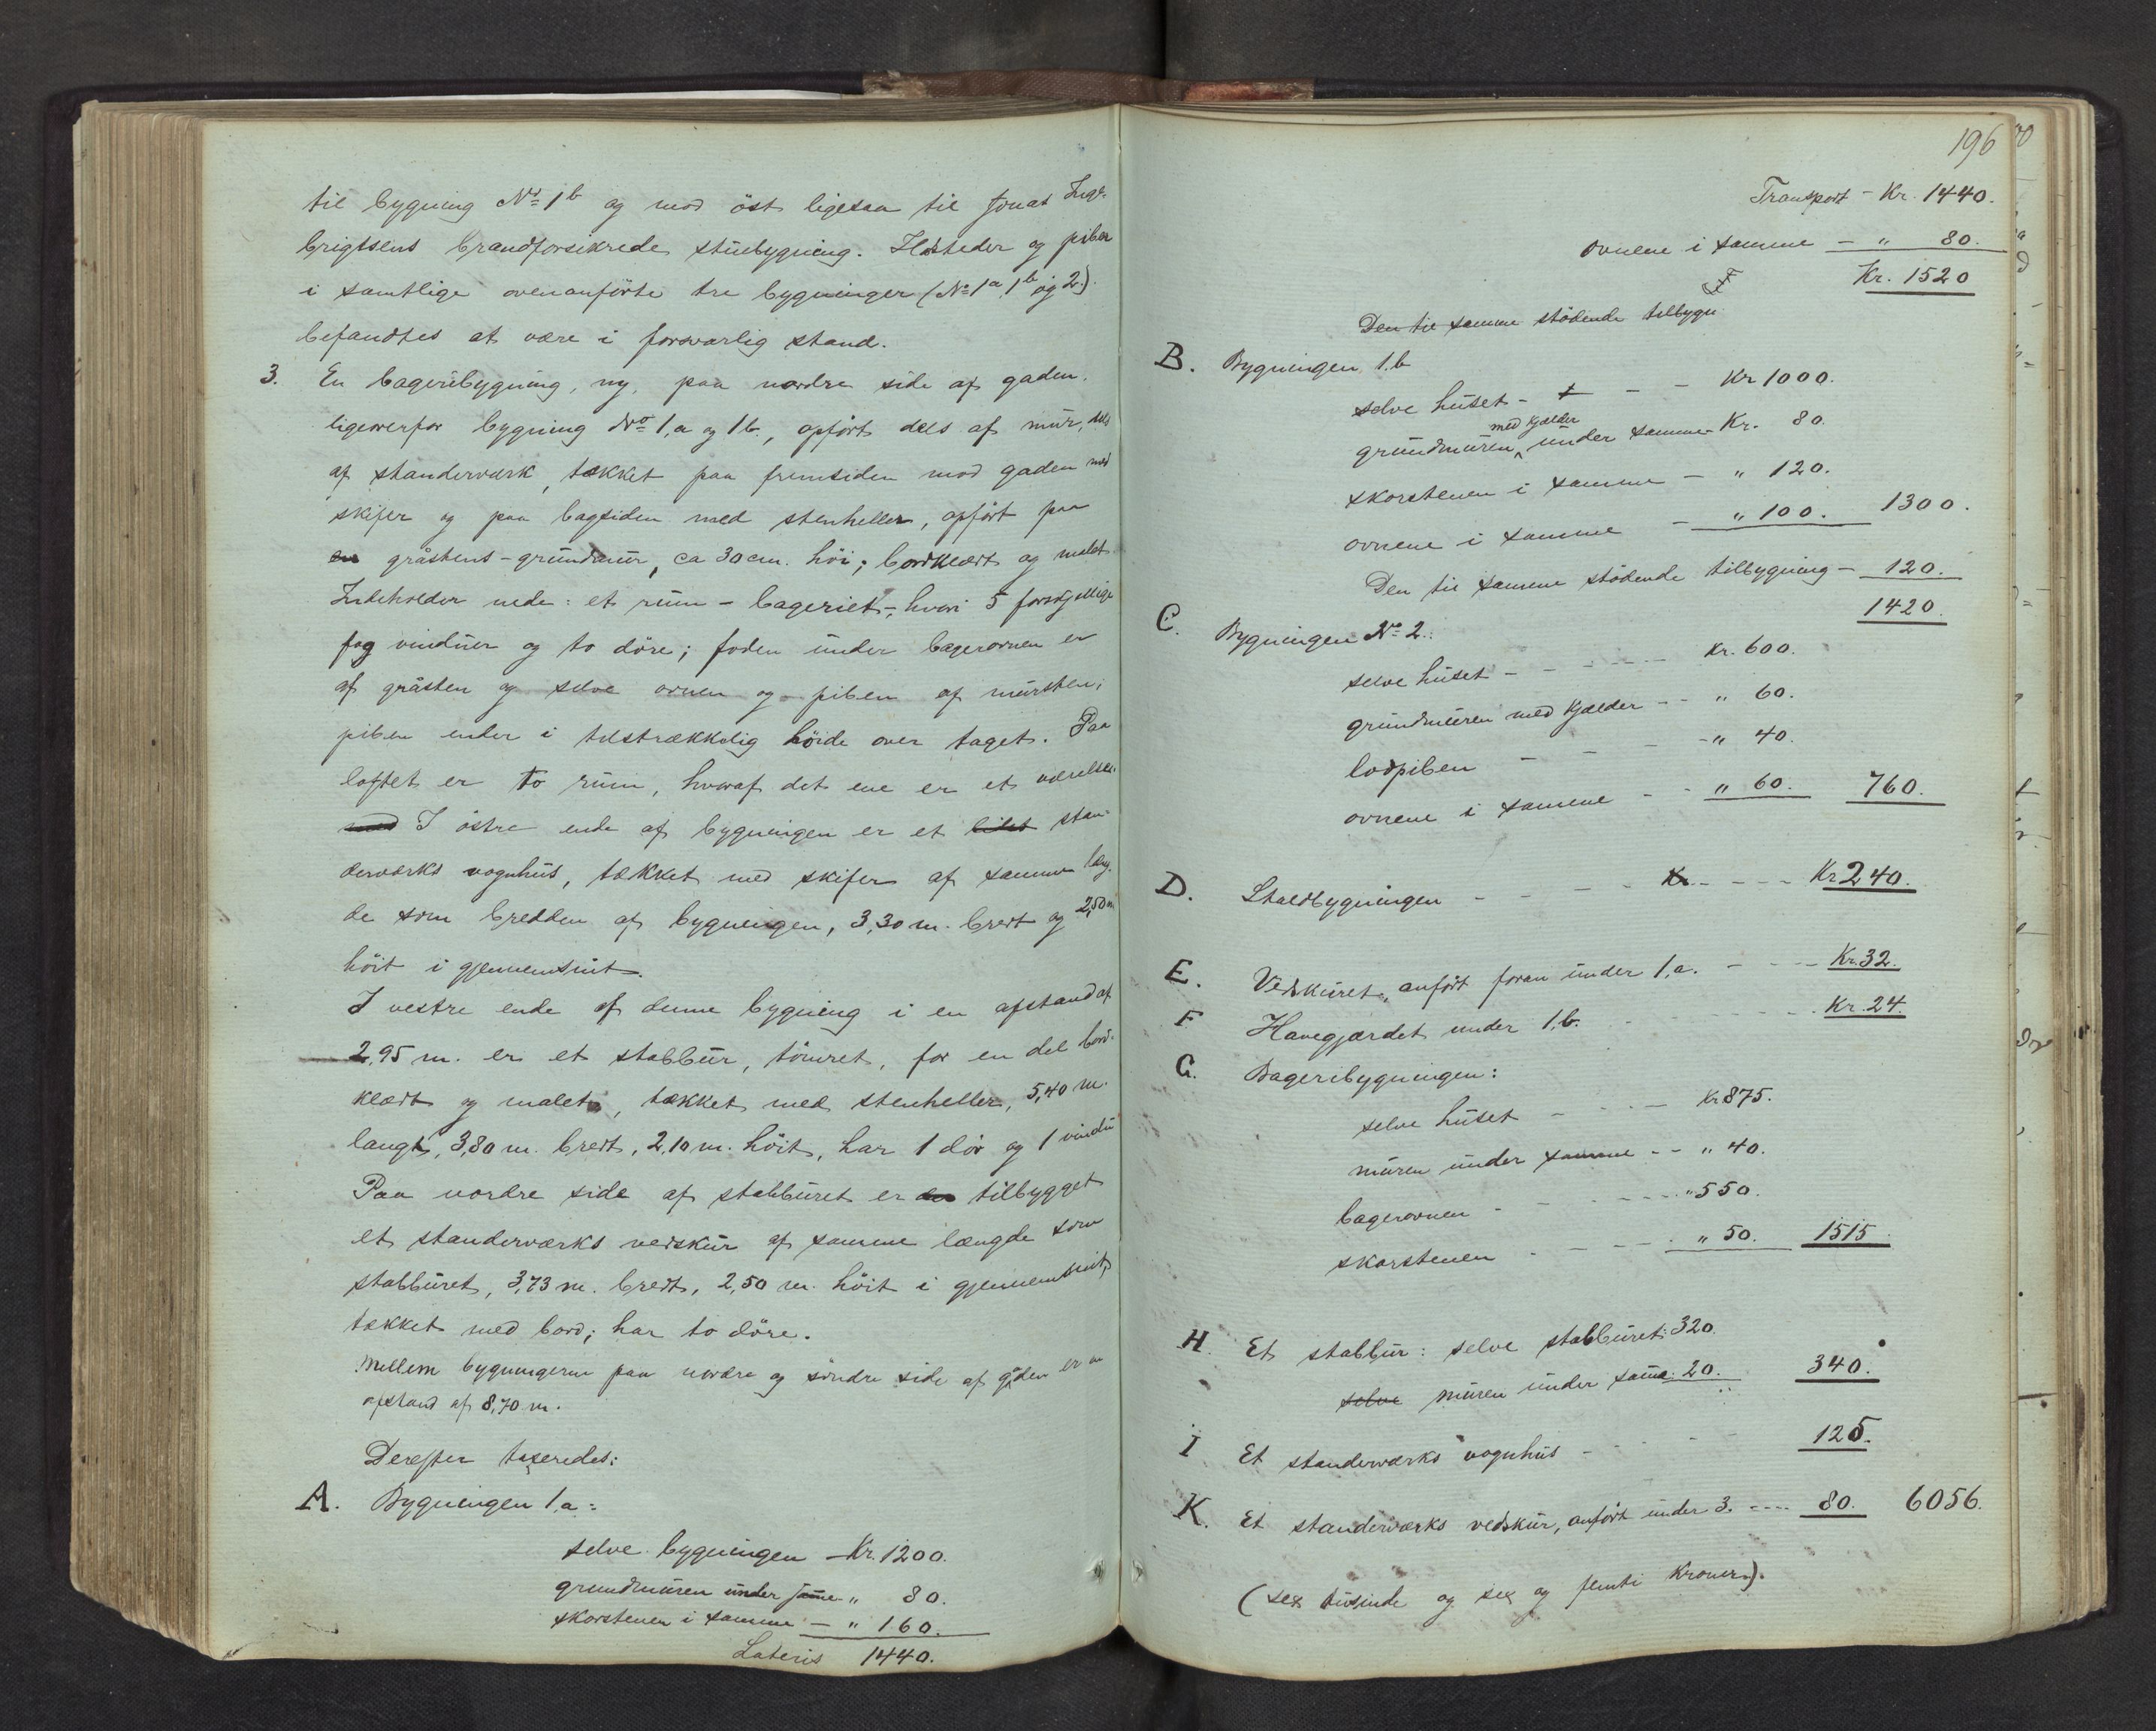 til bygning No 1b og mod öst ligesaa til Jonas Inge-
brigtsens brandforsikrede stuebygning. Ildsteder og piber
i samtlige ovenanförte tre bygninger (No 1a 1b og 2)
befandtes at være i forsvarlig stand.
3. En bageribygning, ny, paa nordre side af gaden,
ligeoverfor bygning No 1,a og 1b., opfört dels af mur, dels
af standerværk, tækket paa fremsiden mod gaden med
skifer og paa bagsiden med stenheller, opfört paa
en gråstens-grundmur, ca 30 cm. höi; bordklædt og malet.
Indeholder nede: et rum - bageriet -, hvori 5 forskjellige
fag vinduer og to döre; foden under bagerovnen er
af gråsten og selve ovnen og piben af mursten;
piben ender i tilstrækkelig höide over taget. Paa
loftet er to rum, hvoraf det ene er et værelse.
med I östre ende af bygningen er et lidet stan-
derværks vognhus, tækket med skifer af samme læng-
de som bredden af bygningen, 3,30 m. bredt og 2,50 m
höit i gjennemsnit.
I vestre ende af denne bygning i en afstand af
2,95 m. er et stabbur, tömret, for en del bord-
klædt og malet, tækket med stenheller, 5,40 m.
langt, 3,80 m. bredt, 2,10 m. höit, har 1 dör og 1 vindu
Paa nordre side af stabburet er en tilbygget
et standerværks vedskur af samme længde som
stabburet, 3,73 m. bredt, 2,50 m. höit i gjennemsnit,
tækket med bord; har to döre.
Mellem bygningerne paa nordre og söndre side af gaden er en
afstand af 8,70 m.
Derefter taxeredes:
A. Bygningen 1,a:
selve bygningen - Kr. 1200.
grundmuren under samme " 80.
skorstenen i samme - " 160.
Lateris 1440.
196
Transport - Kr. 1440.
ovnene i samme - " 80.
Kr. 1520
Den til samme stödende tilbygn
B. Bygningen 1.b
selve huset - - - Kr 1000.
med kjælder
grundmuren under samme - Kr. 80.
skorstenen i samme - " 120.
ovnene i samme - " 100. 1300.
Den til samme stödende tilbygning - 120.
1420.
C. Bygningen No 2.:
selve huset - - - - Kr. 600.
grundmuren med kjælder - - " 60.
lodpiben - - - " 40.
ovnene i samme - - " 60. 760.
D. Staldbygningen - - - - Kr - - - - Kr 240.
E. Vedskuret, anfört foran under 1,a. - - - - Kr. 32.
F Havegjærdet under 1,b. - - - - Kr. 24.
G. Bageribygningen:
selve huset - - - - Kr 875.
muren under samme - - " 40.
bagerovnen - - - - " 550.
skorstenen - - - - " 50. 1515
H. Et stabbur: selve stabburet: 320.
selve muren under samme: 20. 340.
I Et standerværks vognhus - - - 125.
K. Et standerværks vedskur, anfört under 3. ---- 80. 6056.
(sex tusinde og sex og femti kroner).